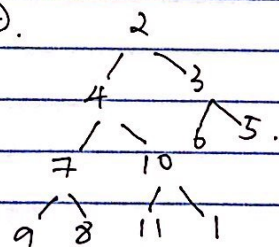 2
4 3
7 10 6 5.
9 8 11 1